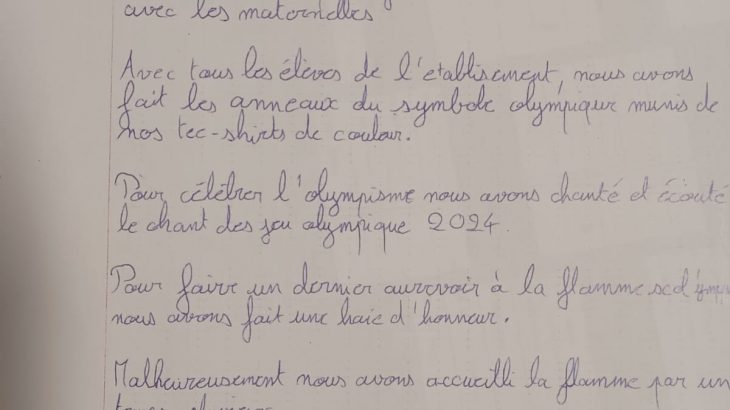 avec les maternelles
Avec tous les élèves de l'établisement, nous avons
fait les anneaux du symbole olympique munis de
nos tee-shirts de couleur.
Pour célébrer l'olympisme nous avons chanté et écouté
le chant des jeu olympique 2024.
Pour faire un dernier aurevoir à la flamme
nous avons fait une haie d'honneur.
Malheureusement nous avons accueilli la flamme par un